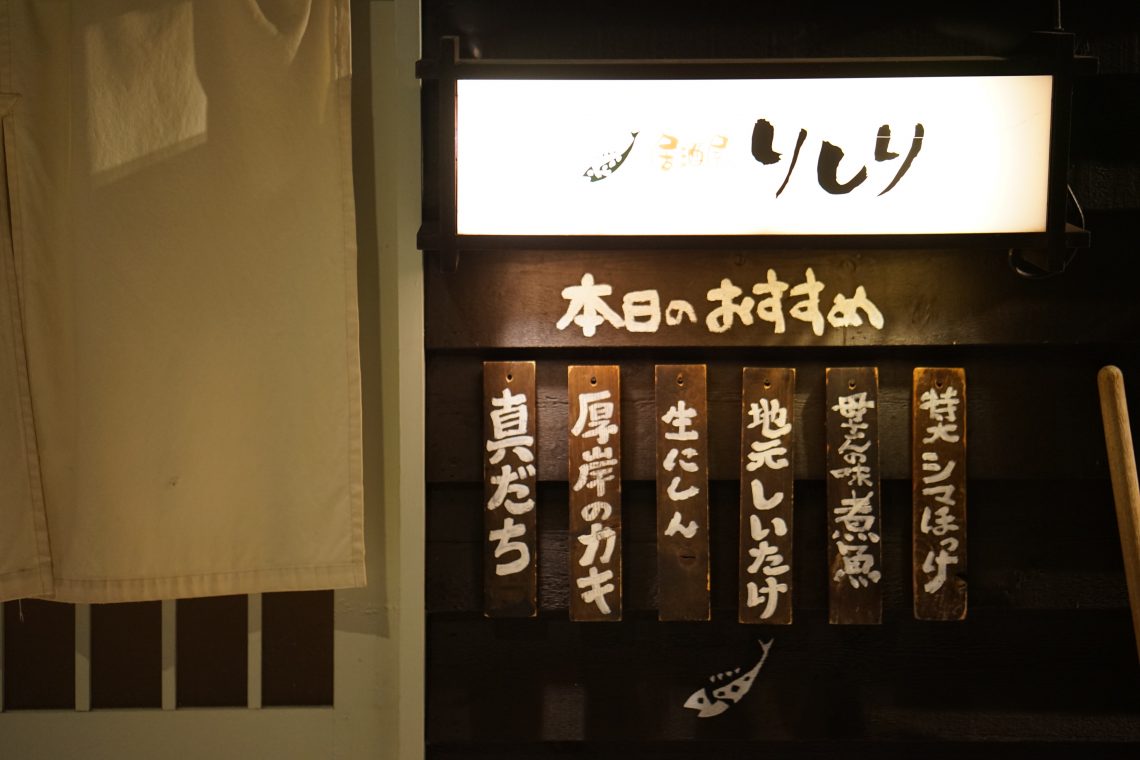 居酒屋 りしり
本日のおすすめ
特大シマほっけ
母さんの味煮魚
地元しいたけ
生にしん
厚岸のカキ
真だち